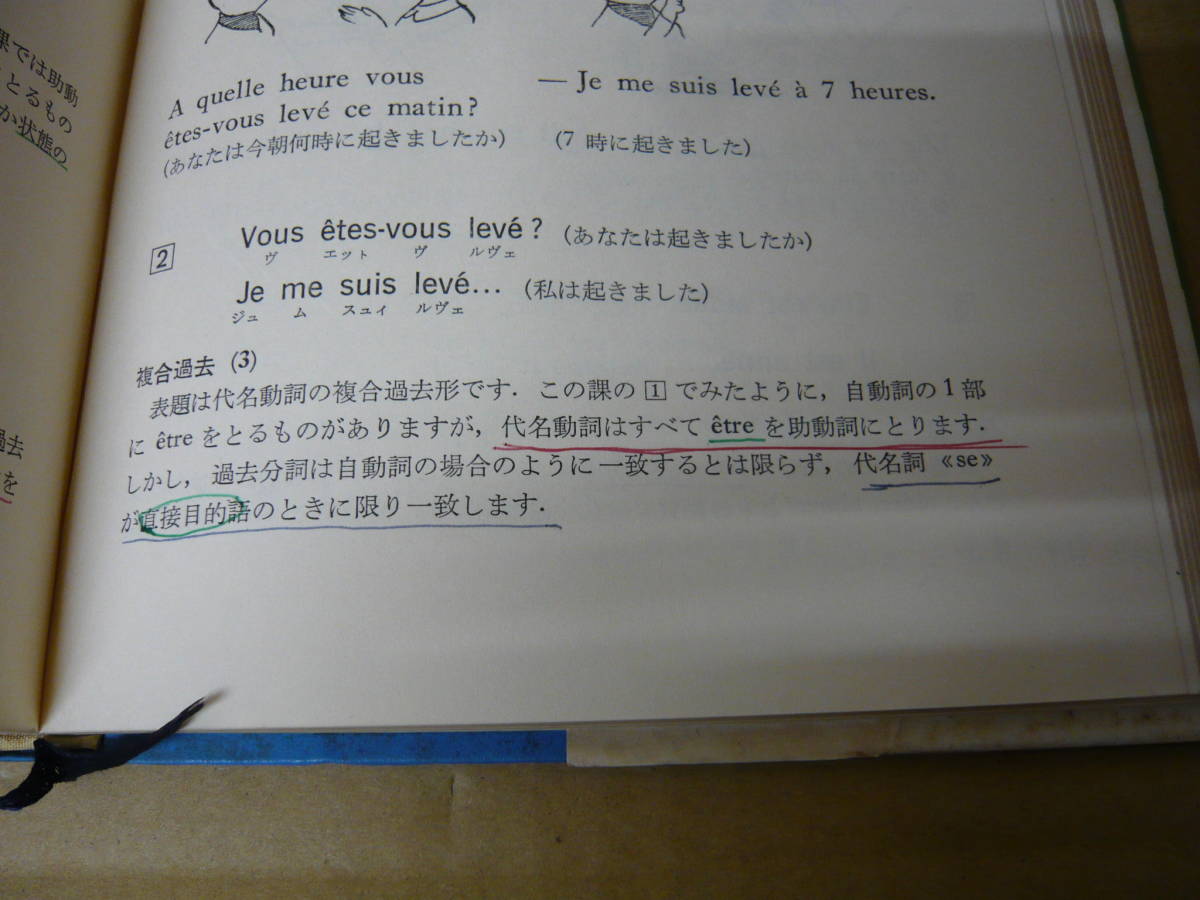 課では助動
とるもの
か状態の
過去
を
A quelle heure vous
êtes-vous levé ce matin?
(あなたは今朝何時に起きましたか)
— Je me suis levé à 7 heures.
(7 時に起きました)
2
Vous êtes-vous levé ? (あなたは起きましたか)
ヴ エット ヴ ルヴェ
Je me suis levé... (私は起きました)
ジュ ム スュイ ルヴェ
複合過去 (3)
表題は代名動詞の複合過去形です．この課の 1 でみたように，自動詞の1部
に être をとるものがありますが，代名動詞はすべて être を助動詞にとります．
しかし，過去分詞は自動詞の場合のように一致するとは限らず，代名詞 «se»
が直接目的語のときに限り一致します．